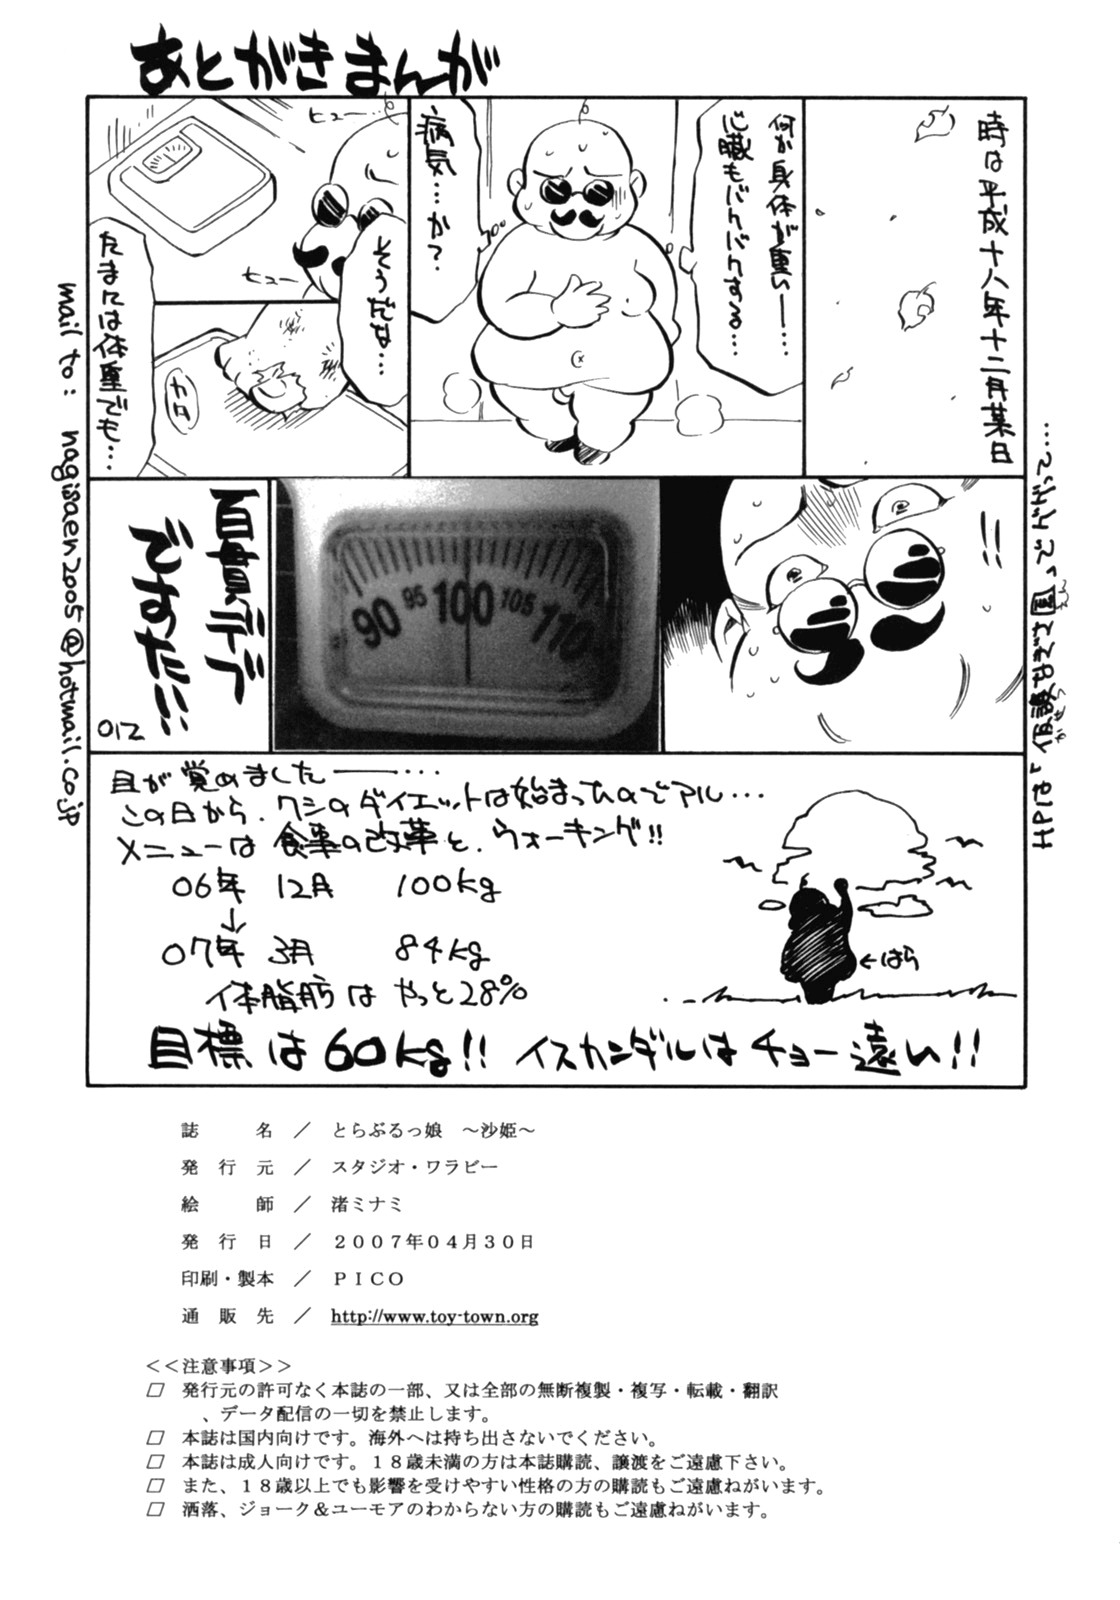 あとがきまんが
時は平成十八年十二月某日
何か身体が重い――…
心臓もバクバクする…
病気…か?
ヒュー…
ヒュー
そうだな…
たまには体重でも…
カタ
!!
90 95 100 105 110
百貫デブ
ですた!!
012
目が覚めました――…
この日から、ワシのダイエットは始まったのでアル…
メニューは食事の改革と、ウォーキング!!
06年 12月 100kg
↓
07年 3月 84kg
体脂肪はやっと28%
←はら
目標は60kg!! イスカンダルはチョー遠い!!
mail to: nagisaen2005@hotmail.co.jp
誌 名 / とらぶるっ娘 ～沙姫～
発 行 元 / スタジオ・ワラビー
絵 師 / 渚ミナミ
発 行 日 / 2007年04月30日
印刷・製本 / PICO
通 販 先 / http://www.toy-town.org
<<注意事項>>
□ 発行元の許可なく本誌の一部、又は全部の無断複製・複写・転載・翻訳
、データ配信の一切を禁止します。
□ 本誌は国内向けです。海外へは持ち出さないでください。
□ 本誌は成人向けです。18歳未満の方は本誌購読、譲渡をご遠慮下さい。
□ また、18歳以上でも影響を受けやすい性格の方の購読もご遠慮ねがいます。
□ 洒落、ジョーク&ユーモアのわからない方の購読もご遠慮ねがいます。